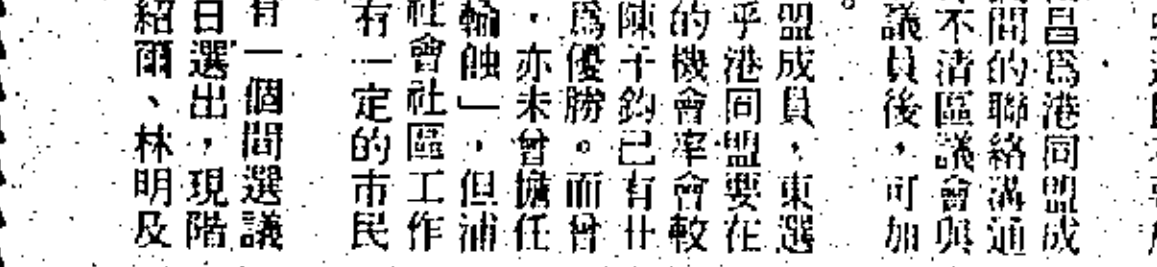 昌爲港同盟成
間的聯絡溝通
不清區議會與
議員後，可加
。
盟成員，東選
乎港同盟要在
的機會率會較
陳千鈞已有廿
爲優勝。而曾
，亦未曾擔任
輸蝕」，但浦
社會社區工作
有一定的市民
有一個間選議
日選出，現階
紹爾、林明及